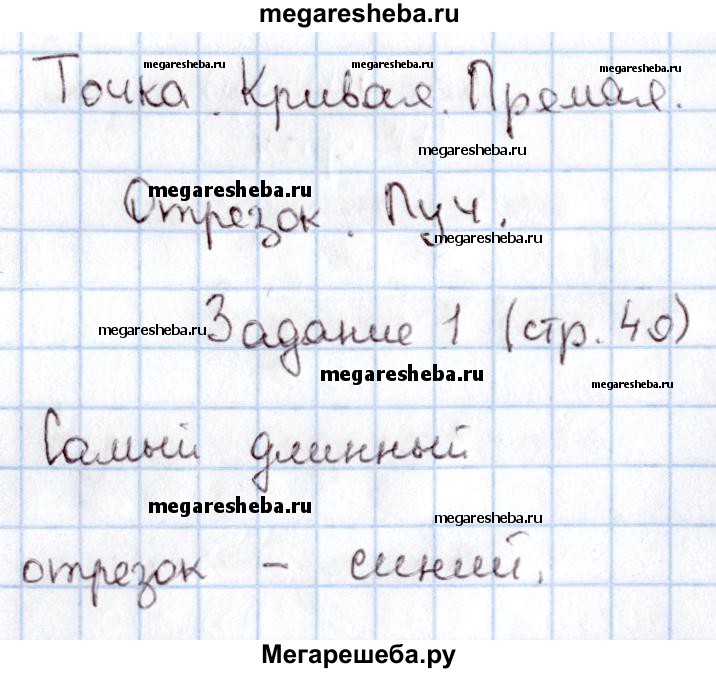 megaresheba.ru
megaresheba.ru megaresheba.ru megaresheba.ru
Точка. Кривая. Прямая.
megaresheba.ru
megaresheba.ru
Отрезок. Луч.
megaresheba.ru
megaresheba.ru
Задание 1 (стр. 40)
megaresheba.ru
megaresheba.ru
Самый длинный
megaresheba.ru
megaresheba.ru
отрезок – синий.
Мегарешеба.ру